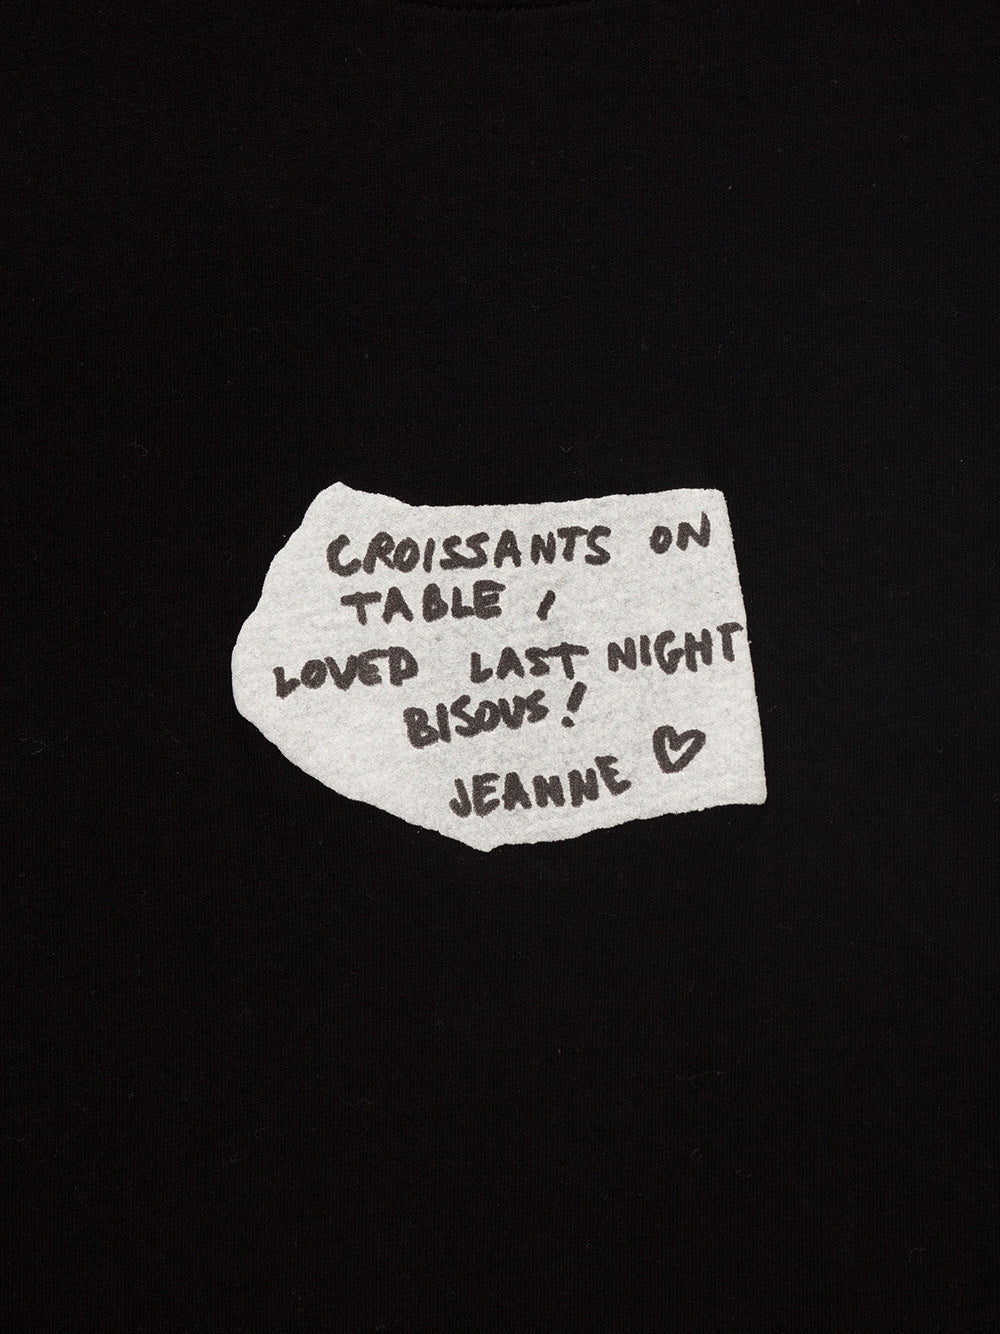 CROISSANTS ON
TABLE,
LOVED LAST NIGHT
BISOUS!
JEANNE ♡